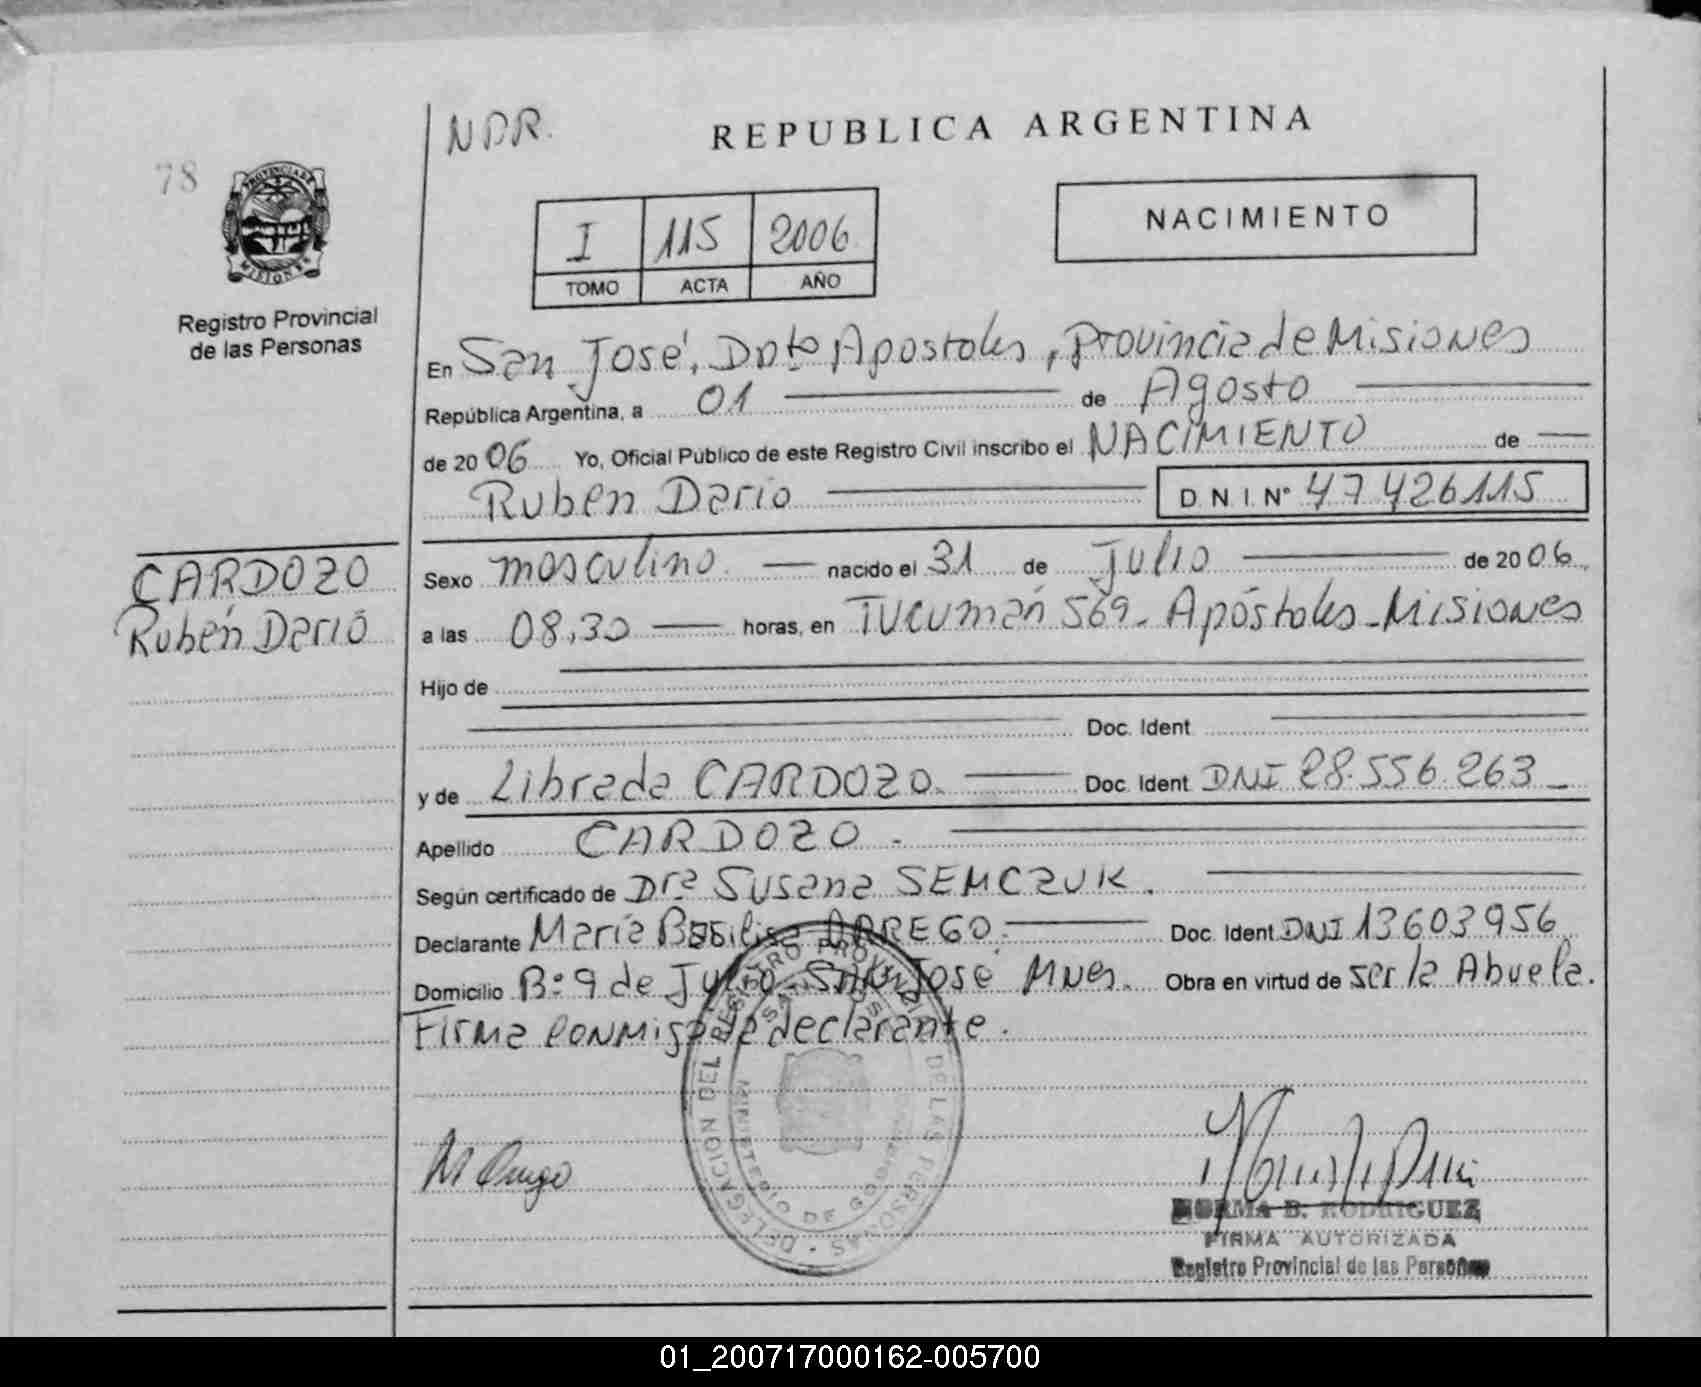 NDR.
REPUBLICA ARGENTINA
78
PROVINCIA DE
MISIONES
Registro Provincial
de las Personas
I 115 2006
TOMO ACTA AÑO
NACIMIENTO
En San José, Dpto Apostoles, Provincia de Misiones
República Argentina, a 01 de Agosto
de 20 06 Yo, Oficial Público de este Registro Civil inscribo el NACIMIENTO de
Ruben Dario D.N.I. N° 47426115
CARDOZO
Rubén Darió
Sexo masculino nacido el 31 de Julio de 20 06
a las 08,30 horas, en Tucumán 569 - Apóstoles - Misiones
Hijo de
Doc. Ident
y de Librada CARDOZO. Doc. Ident DNI 28.556.263
Apellido CARDOZO.
Según certificado de Dra Susana SEMCZUK.
Declarante María Basilisa ARREGO. Doc. Ident DNI 13603956
Domicilio B: 9 de Julio - San José Mnes. Obra en virtud de ser la Abuela.
Firma conmigo la declarante.
DELEGACION DEL REGISTRO PROVINCIAL DE LAS PERSONAS
SAN JOSE
MINISTERIO DE GOBIERNO
M Arrego
NORMA B. RODRIGUEZ
FIRMA AUTORIZADA
Registro Provincial de las Personas
01_200717000162-005700